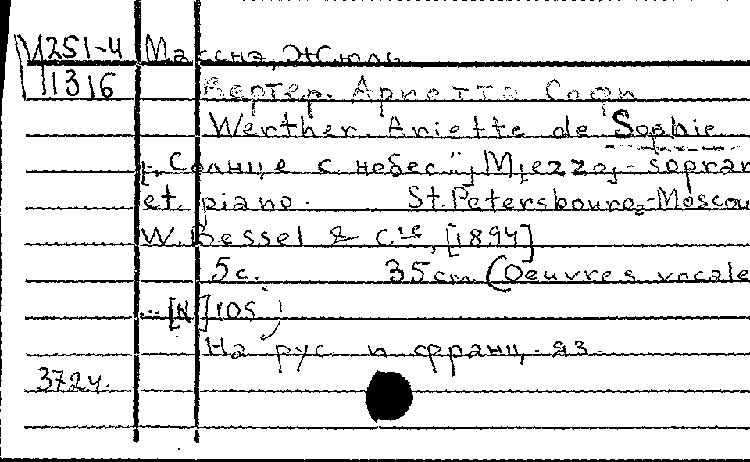 М251-4 Массна, Жюль.
11316 Вертер. Ариетта Софи
Werther. Ariette de Sophie
["Солнце с небес"; M[ezzo]-sopran
et piano. St. Petersbourg-Moscou
W. Bessel & Cie, [1894]
5 с. 35 cm. (Oeuvres vocale
... [N] 105)
На рус. и франц. яз.
3724.